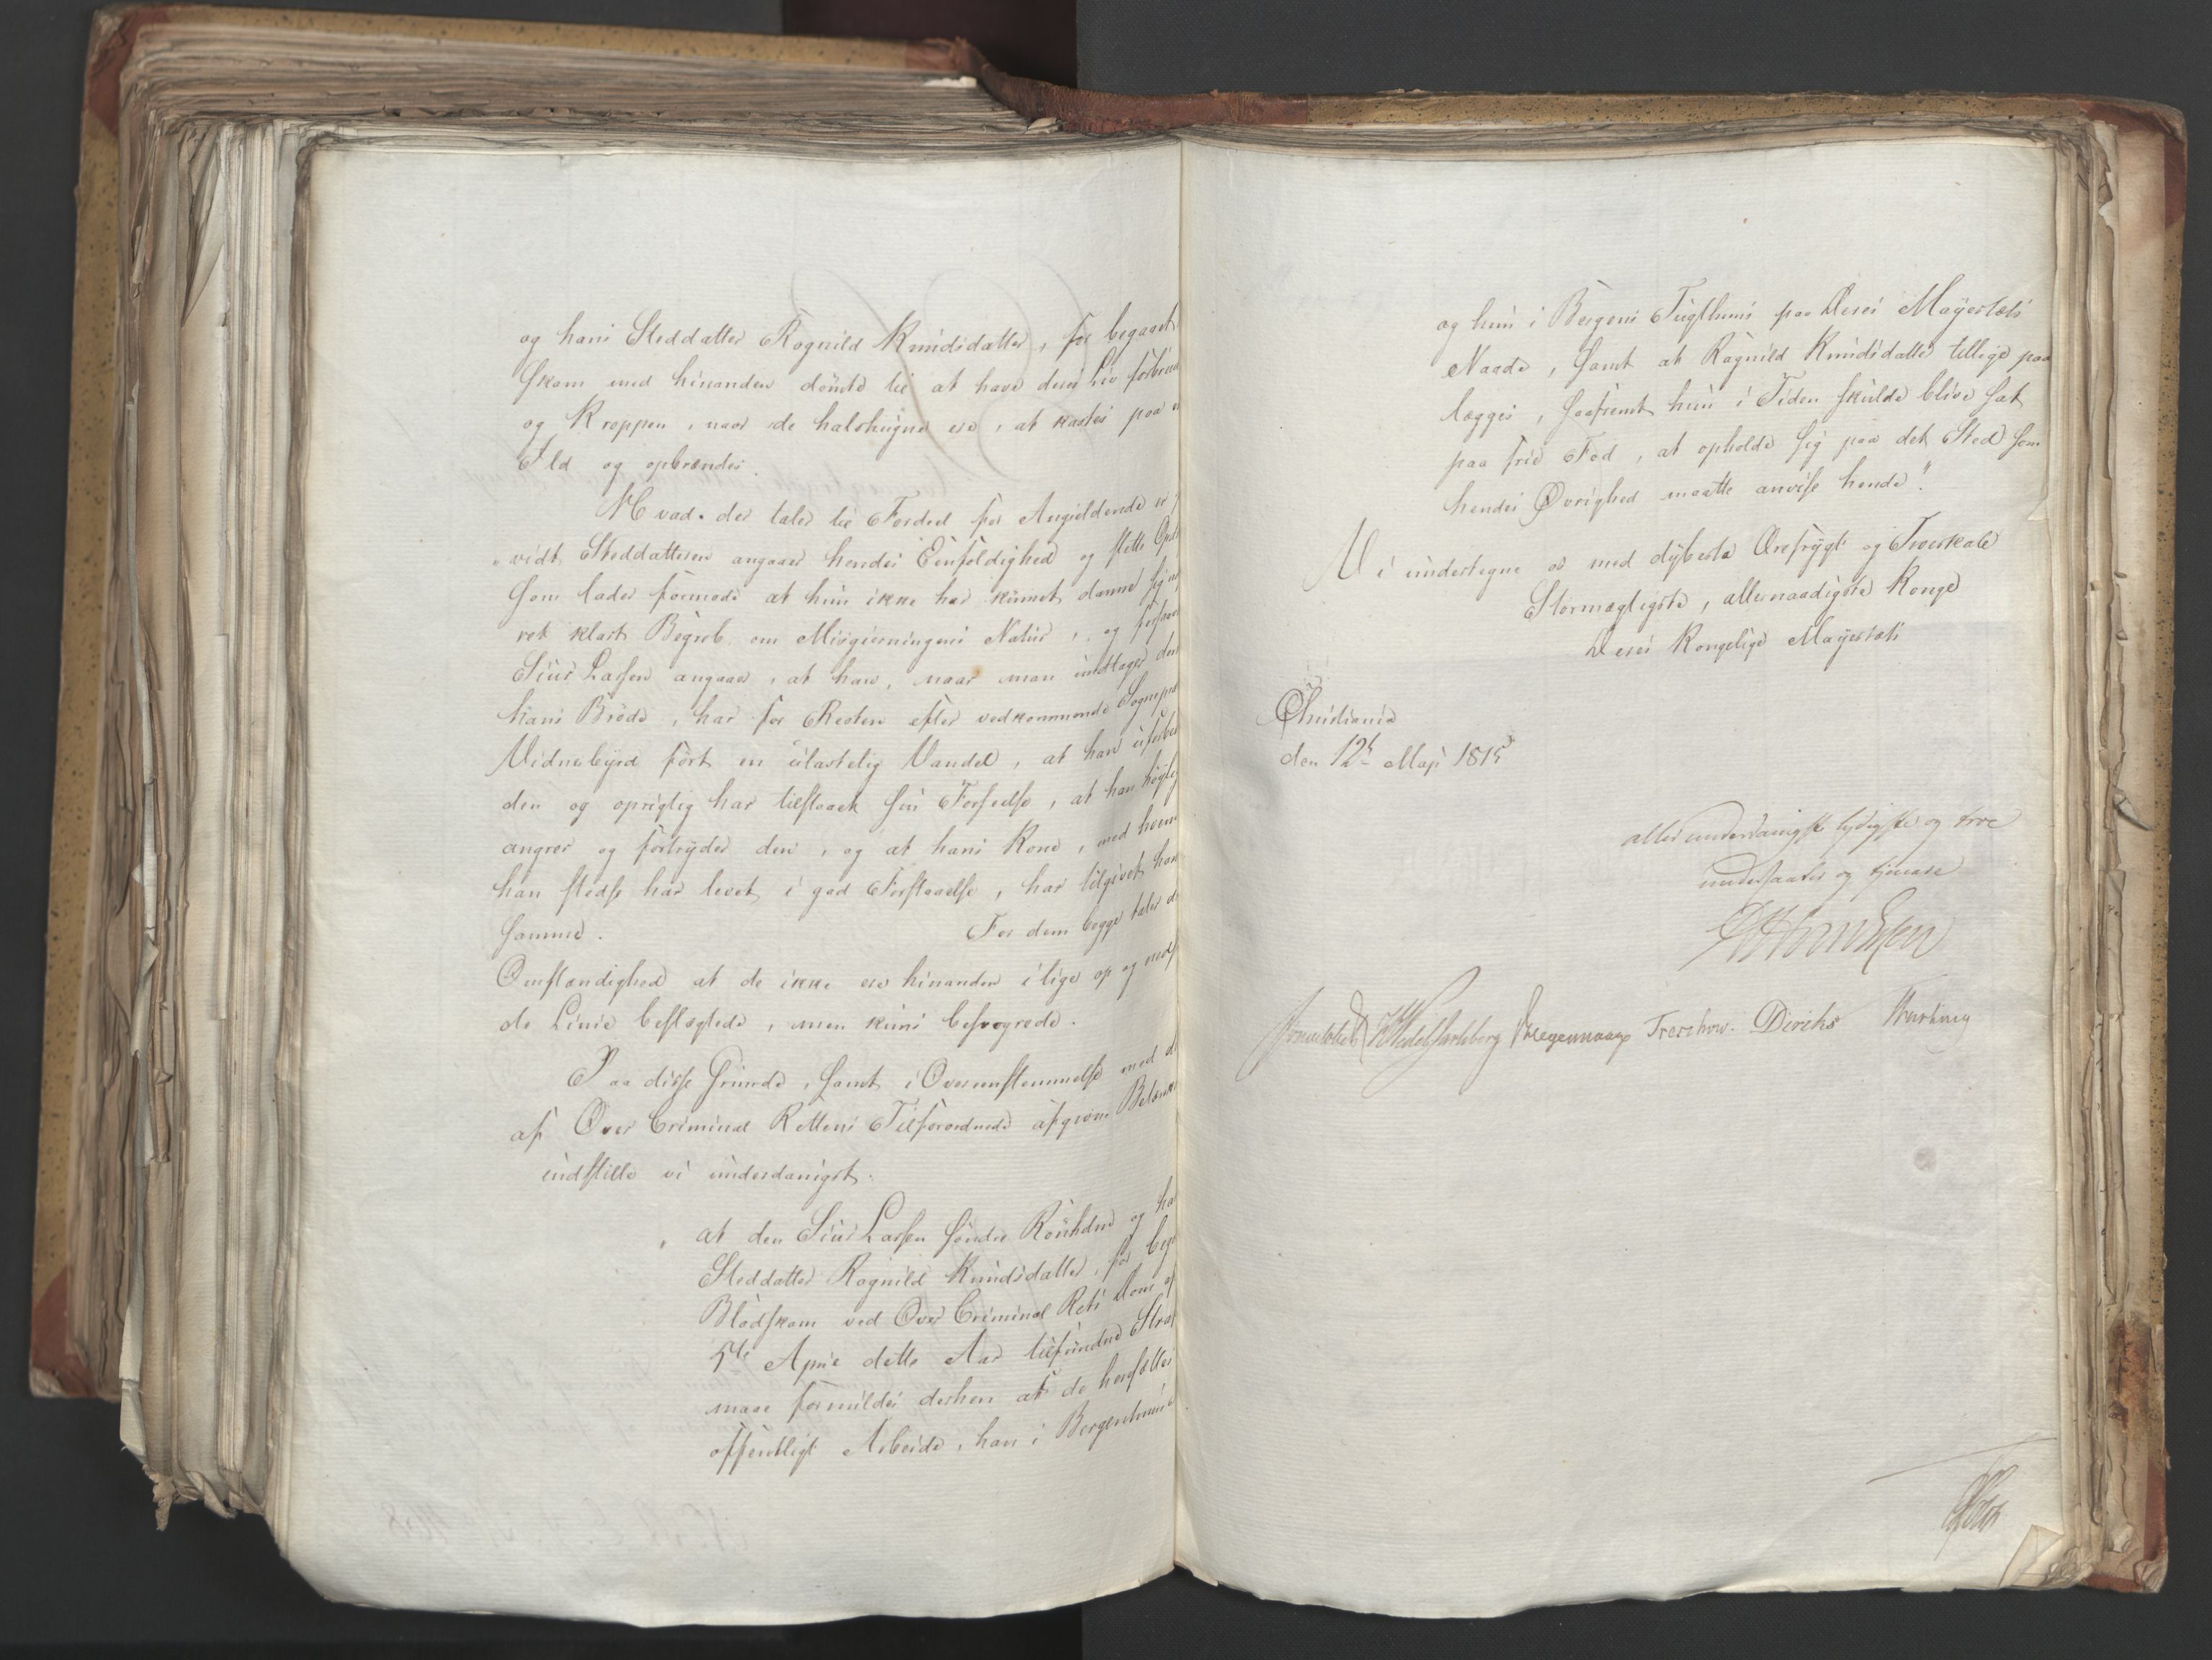 og hans Steddatter Rognild Knudsdatter, for begaaet
skam med hinanden dömte til at have deres Liv forbrudt
og Kroppen, naar de halshugne ere, at kastes paa
Ild og opbrændes.
Hvad der taler til Fordeel for Angieldende er
vidt Steddatteren angaaer hendes Eenfoldighed og slette
som lader formode at hun ikke har kunnet danne sig
ret klart Begreb om Misgierningens Natur, og forsaavidt
Siur Larsen angaaer, at han, naar man undtager den
hans Bröde, har for Resten efter vedkommende Sogneprests
Vidnebyrd fört en ulastelig Vandel, at han
den og oprigtig har tilstaaet sin Forseelse, at han höylig
angrer og fortryder den, og at hans Kone, med hvem
han stedse har levet i god Forstaaelse, har tilgivet ham
samme. For dem begge taler
Omstændighed at de ikke ere hinanden i lige op og
de Linie beslægtede, men kuns besvogrede.
Paa disse Grunde, samt i Overeensstemmelse med
af Over Criminal Rettens Tilforordnede afgivne
indstille vi underdanigst:
at den Siur Larsen söndre og
Steddatter Rognild Knudsdatter, for
Blodskam ved Over Criminal Rets Dom af
5te April dette Aar tilfundne Straf
maae formildes derhen at de hensættes
offentligt Arbeide, han i Bergenhuus
og hun i Bergens Tugthuus paa Deres Mayestæts
Naade, samt at Ragnild Knudsdatter tillige paa
lægges, saafremt hun i Tiden skulde blive sat
paa frie Fod, at opholde sig paa det Sted som
hendes Øvrighed maatte anvise hende".
Vi undertegne os med dybeste Ærefrygt og Troeskab
Stormægtigste, allernaadigste Konge
Deres Kongelige Mayestæts
Christiania
den 12t Maji 1815
allerunderdanigste lydigste og troe
undersaatter og tjenere
Sommerhielm HWedel Jarlsberg Hegermann Treschow. Diriks